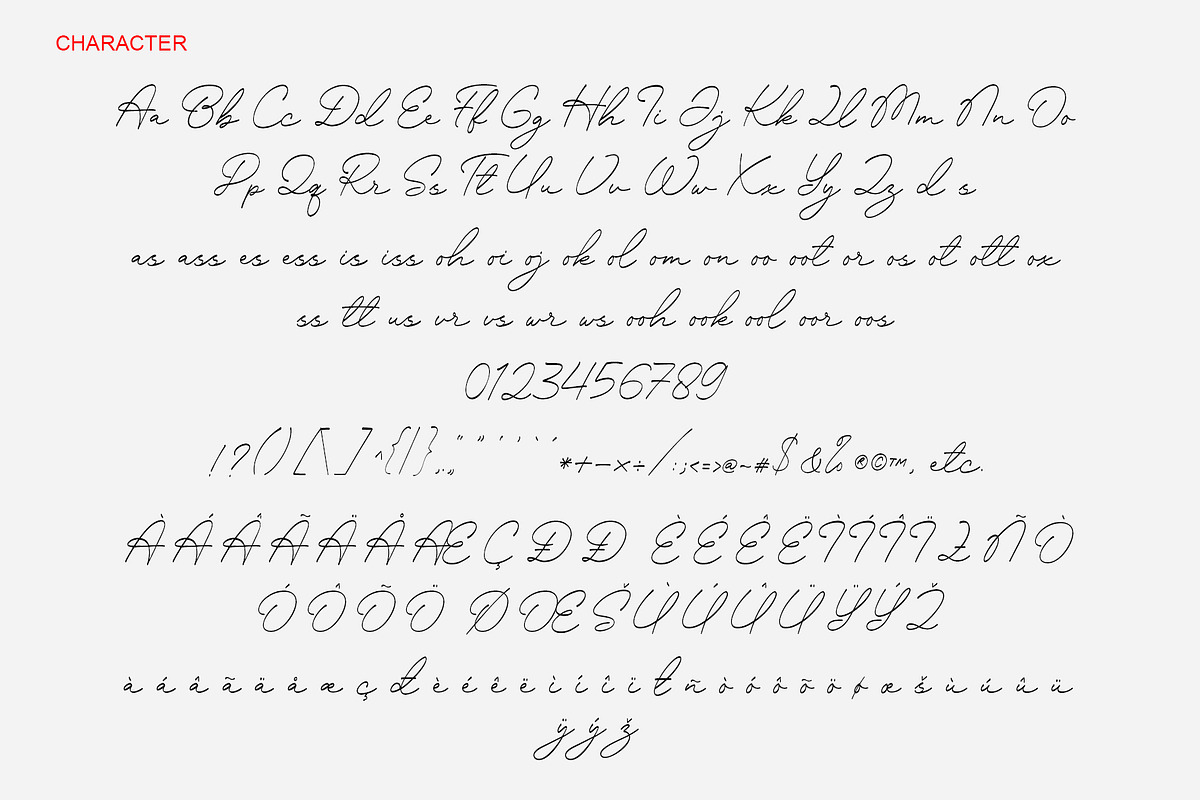 CHARACTER
Aa Bb Cc Dd Ee Ff Gg Hh Ii Jj Kk Ll Mm Nn Oo
Pp Qq Rr Ss Tt Uu Vv Ww Xx Yy Zz d s
as ass es ess is iss oh oi oj ok ol om on oo oot or os ot ott ox
ss tt us vr vs wr ws ooh ook ool oor oos
0123456789
!?()[\]^{|},.„ “ ” ‘ ’ ` ´ *+−×÷/:;<=>@~#$&% ®©™, etc.
À Á Â Ã Ä Å Æ Ç Đ Ð È É Ê Ë Ì Í Î Ï Ł Ñ Ò
Ó Ô Õ Ö Ø Œ Š Ù Ú Û Ü Ÿ Ý Ž
à á â ã ä å æ ç đ è é ê ë ì í î ï ł ñ ò ó ô õ ö ø œ š ù ú û ü
ÿ ý ž